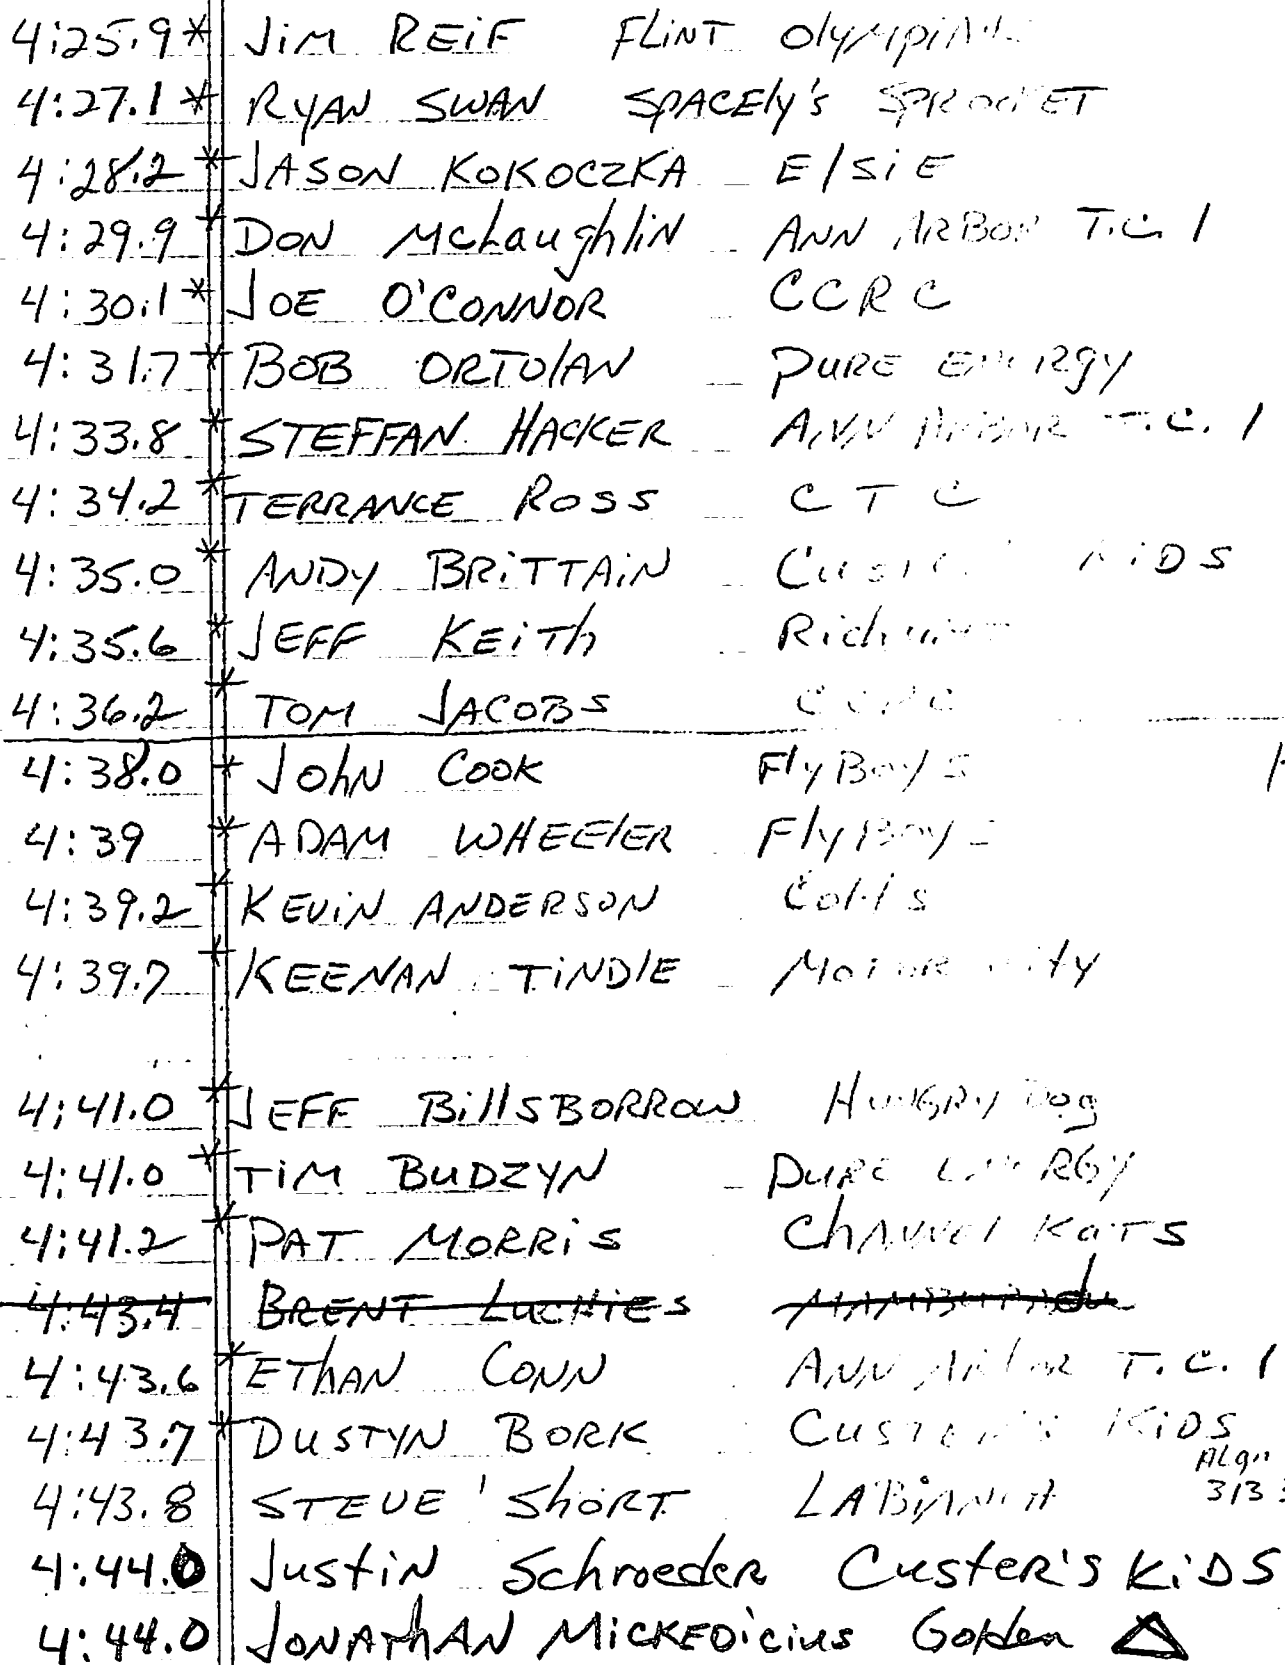 4:25.9* JiM REiF FLiNT OlyMpiANS
4:27.1* RYAN SWAN SPACEly's SPROCKET
4:28.2* JASON KOKOCZKA ElSiE
4:29.9* DON McLaughliN ANN ARBOR T.C. 1
4:30.1* JOE O'CONNOR CCRC
4:31.7* BOB ORTOlAN PURE ENERgy
4:33.8* STEFFAN HACKER ANN ARBOR T.C. 1
4:34.2* TERRANCE ROSS CTC
4:35.0* ANDY BRiTTAiN KiDS
4:35.6* JEFF KEiTh
4:36.2* TOM JACOBS CCRC
4:38.0* JOhN COOK FlyBoyS
4:39* ADAM WHEElER FlyBoys
4:39.2* KEViN ANDERSON
4:39.7* KEENAN TiNDlE MOTOR City
4:41.0* JEFF BillSBORROW HUNGRY Dog
4:41.0* TiM BUDZYN PURE ENERGY
4:41.2* PAT MORRiS ChANNEl KATS
4:43.4 BRENT LUCHiES
4:43.6* EThAN CONN ANN ARbOR T.C. 1
4:43.7* DUSTYN BORK CUSTER'S KiDS
4:43.8 STEVE ShORT
313
4:44.0 JustiN SchroedeR CusteR's KiDS
4:44.0 JONAThAN MiCKEDiCius Golden △